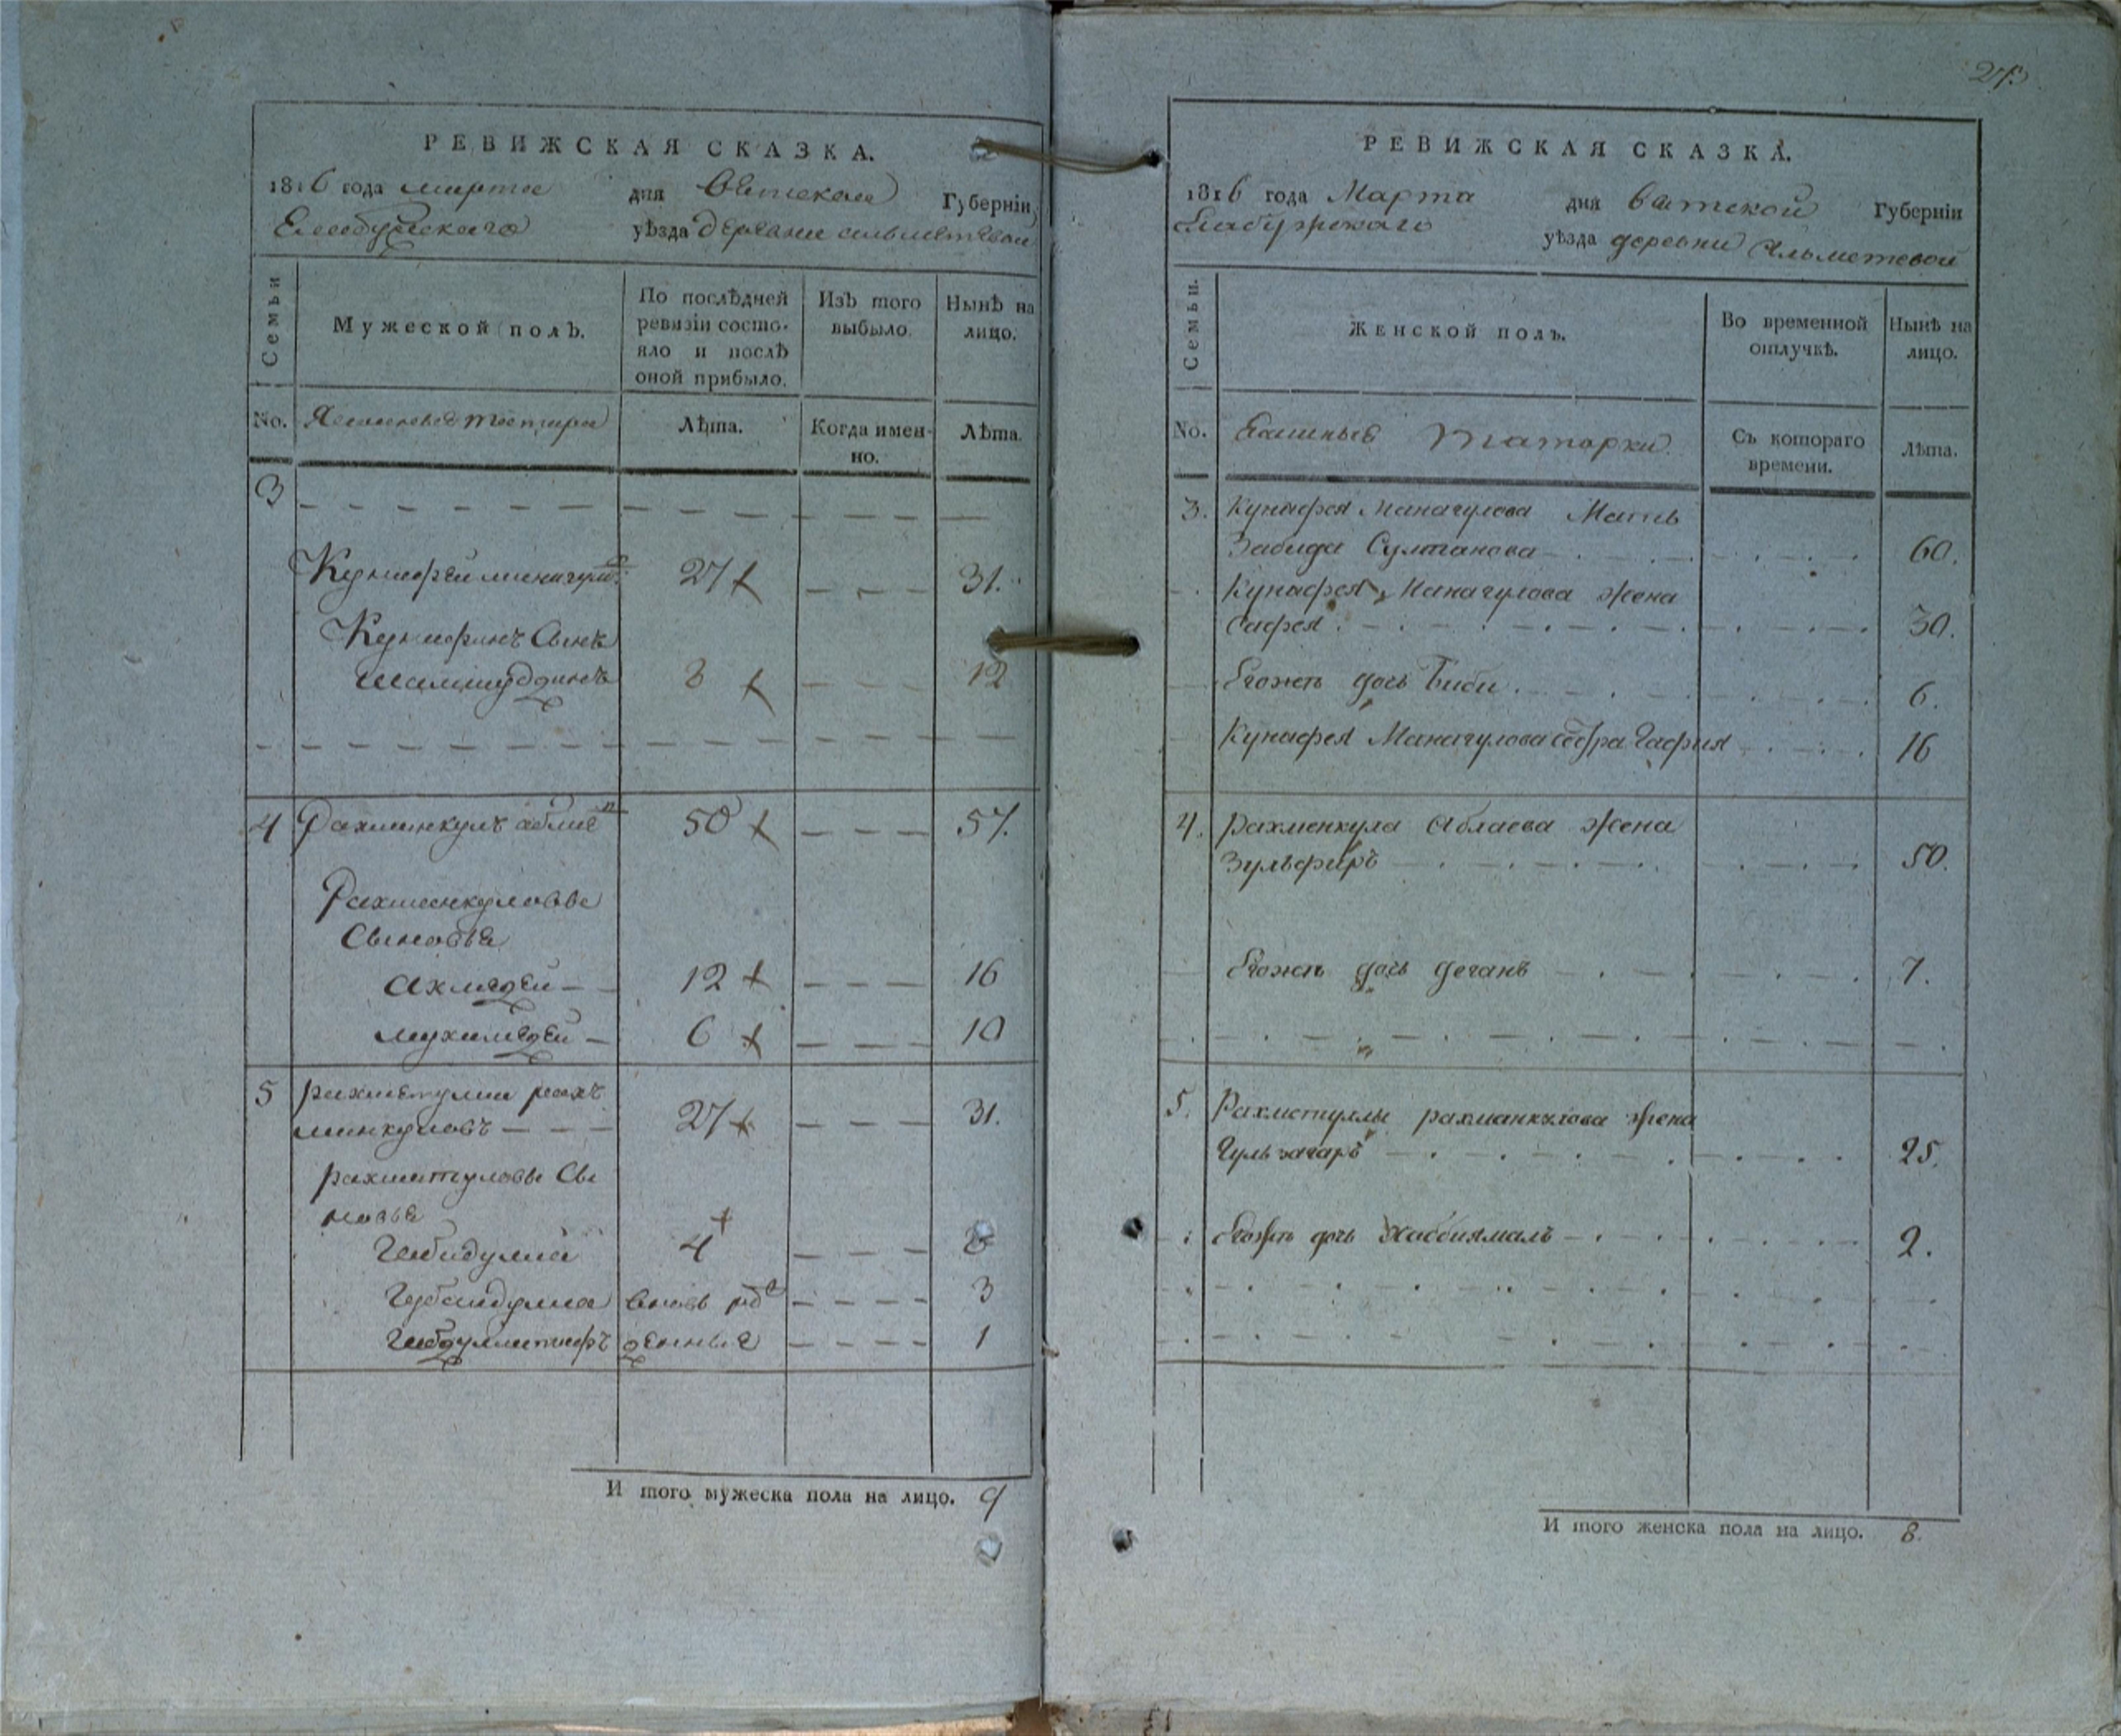 РЕВИЖСКАЯ СКАЗКА.
1816 года марта дня Вятской Губерніи
Елабужскаго уѣзда деревни альметевой
Семьи
Мужеской полъ.
По послѣдней ревизіи состо-
яло и послѣ
оной прибыло.
Изъ того
выбыло.
Нынѣ на
лицо.
No. Ясашные татара Лѣта. Когда имен-
но. Лѣта.
3
Кунафей манагулов 27 31.
Кунафинъ Сынъ
шамшуддинъ 8 12
4 Рахманкулъ аблаев 50 57.
Рахманкуловы
Сыновья
ахмадей 12 16
мухамедей 6 10
5 рахметулла рахъ
манкуловъ 27 31.
рахматуловы Сы
новья
Габидулла 4 8
Губайдулла вновь рож 3
Габдуллатифъ денныя 1
И того мужеска пола на лицо. 9
27.
РЕВИЖСКАЯ СКАЗКА.
1816 года Марта дня Вятской Губерніи
Елабужскаго уѣзда деревни Альметевой
Семьи.
Женской полъ.
Во временной
отлучкѣ.
Нынѣ на
лицо.
No. Ясашные татарки. Съ котораго
времени. Лѣта.
3. Кунафея Манагулова Мать
Забида Султанова 60.
Кунафея Манагулова жена
Сафея 30.
Егожъ дочь Биби 6.
Кунафея Манагулова сестра Гафия 16
4. рахменкула Аблаева жена
Зульфиръ 50.
Егожъ дочь 7.
5. Рахметуллы рахманкулова жена
Гульзагаръ 25.
Егожъ дочь Хаббиямалъ 2.
И того женска пола на лицо. 8.